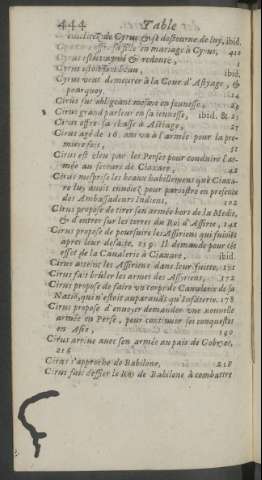 444 Table
de Cyrus, & desterme de luy, ibid.
offre sa fille en mariage à Cyrus, 410
Cyrus estoit aymé & redouté, 1
Cyrus estoit tres-beau, ibid.
Cyrus veut demeurer à la Cour d'Astyage, &
pourquoy. 14
Cirus fut obligeant mesme en jeunesse, 23
Cirus grand parleur en sa jeunesse, ibid. & 23
Cirus offre sa chasse à Astiage, 27
Cirus agé de 16. ans va à l'armée pour la pre-
miere fois, 32
Cirus est éleu par les Perses pour conduire l'ar-
mée au secours de Ciaxare, 42
Cirus mesprise les beaux habillemens que Ciaxa-
re luy avoit envoiez pour paroistre en presence
des Ambassadeurs Indiens, 102
Cirus propose de tirer son armée hors de la Medie,
& d'entrer sur les terres du Roi d'Assirie, 142
Cirus propose de poursuivre les Assiriens qui fuioiẽt
apres leur défaite. 159. Il demande pour cét
effet de la Cavalerie à Ciaxare, ibid.
Cirus atteint les Assiriens dans leur fuitte, 171
Cirus fait brûler les armes des Assiriens, 172
Cirus propose de faire un corps de Cavalerie de sa
Natiõ, qui n'estoit auparavãt qu'Infãterie. 178
Cirus propose d'envoyer demander une nouvelle
armée en Perse, pour continuer ses conquestes
en Asie, 190
Cirus arrive avec son armée au païs de Gobrias,
216
Cirus s'approche de Babilone, 218
Cirus fait deffier le Roi de Babilone à combattre